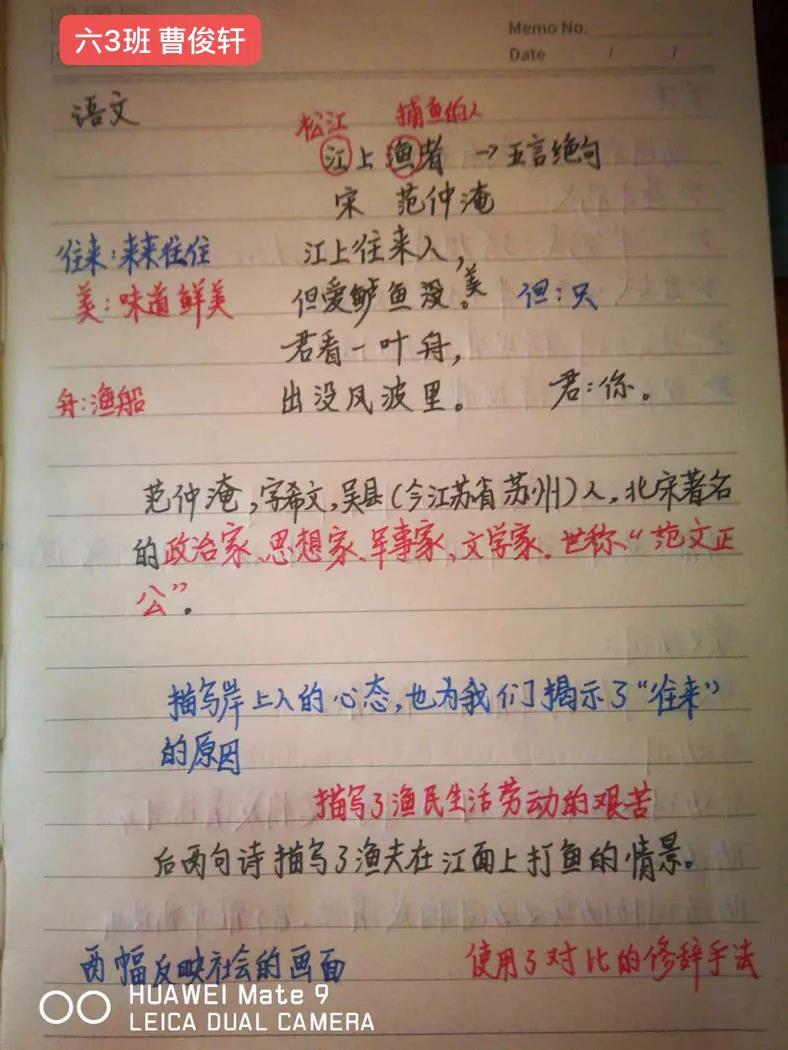 六3班 曹俊轩
Memo No.
Date / /
语文
松江 捕鱼的人
江上渔者 →五言绝句
宋 范仲淹
往来:来来往往 江上往来人,
美:味道鲜美 但爱鲈鱼没美。 但:只
君看一叶舟,
舟:渔船 出没风波里。 君:你。
范仲淹,字希文,吴县(今江苏省苏州)人,北宋著名
的政治家、思想家、军事家、文学家。世称“范文正
公”。
描写岸上人的心态,也为我们揭示了“往来”
的原因
描写了渔民生活劳动的艰苦
后两句诗描写了渔夫在江面上打鱼的情景。
两幅反映社会的画面 使用了对比的修辞手法
HUAWEI Mate 9
LEICA DUAL CAMERA